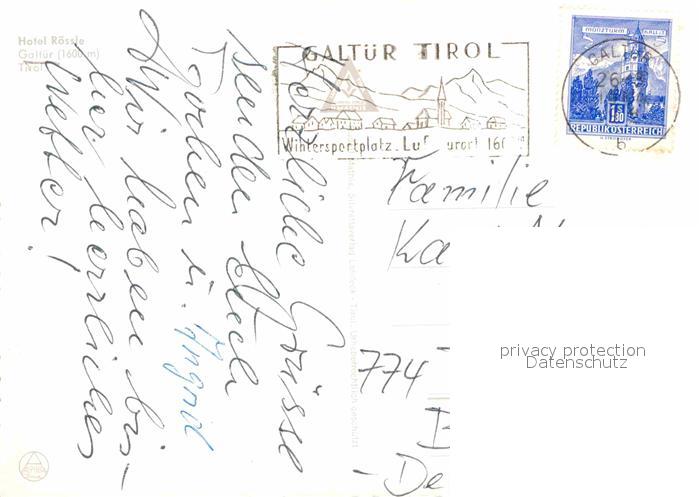 Hotel Rössle
Galtür (1600 m)
Tirol
GALTÜR TIROL
Wintersportplatz - Luftkurort 1600 m
MÜNZTURM HALL I. T.
1.50
REPUBLIK ÖSTERREICH
GALTÜR
b
Herzliche Grüsse
senden Euch
Jochen u. Ingrid
Wir haben bis-
her herrliches
Wetter!
Familie
774
De
privacy protection
Datenschutz